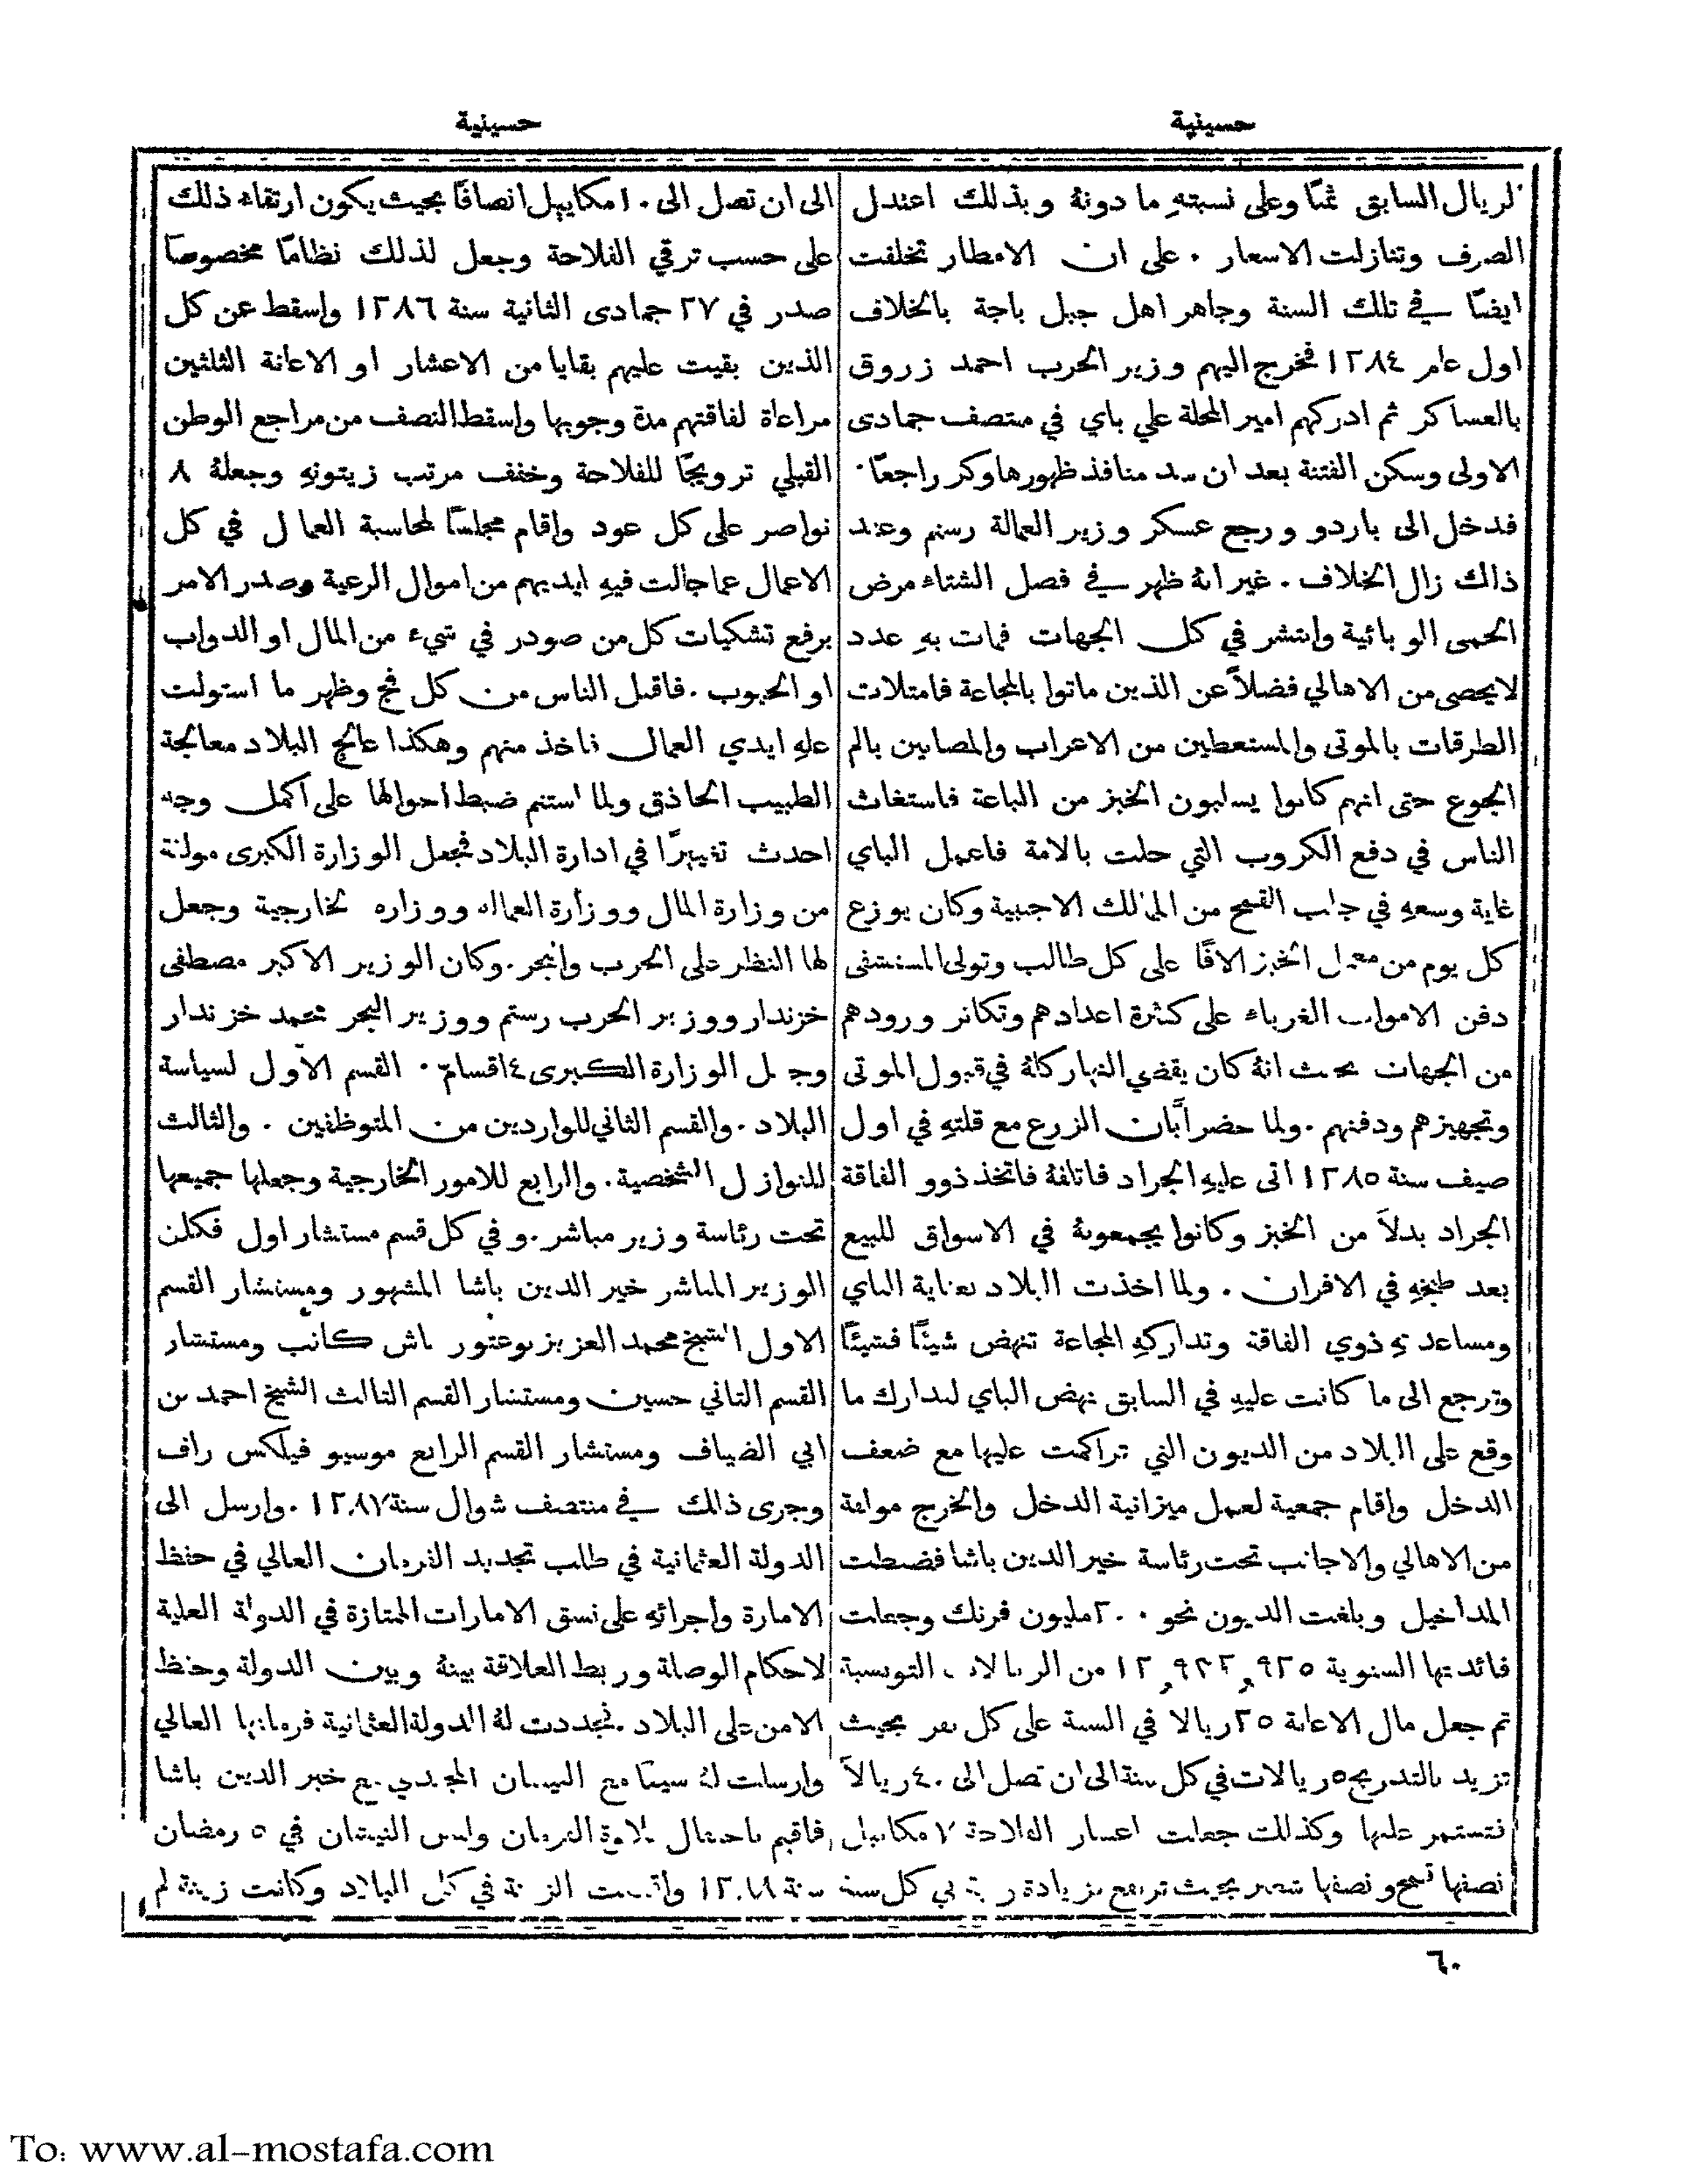 حسينية
حسينية
الريال السابق ثمنًا وعلى نسبتهِ ما دونهُ وبذلك اعتدل
الصرف وتنازلت الاسعار . على ان الامطار تخلفت
ايضًا في تلك السنة وجاهر اهل جبل باجة بالخلاف
اول عام ١٢٨٤ فخرج اليهم وزير الحرب احمد زروق
بالعساكر ثم ادركهم امير المحلة علي باي في منتصف جمادى
الاولى وسكن الفتنة بعد ان سد منافذ ظهورها وكر راجعًا .
فدخل الى باردو ورجع عسكر وزير العمالة رستم وعند
ذلك زال الخلاف . غير انهُ ظهر في فصل الشتاء مرض
الحمى الوبائية وانتشر في كل الجهات فمات بهِ عدد
لا يحصى من الاهالي فضلاً عن الذين ماتوا بالمجاعة فامتلات
الطرقات بالموتى والمستعطين من الاعراب والمصابين بالم
الجوع حتى انهم كانوا يسلبون الخبز من الباعة فاستغاث
الناس في دفع الكروب التي حلت بالامة فاعمل الباي
غاية وسعهِ في جلب القمح من الممالك الاجنبية وكان يوزع
كل يوم من معمل الخبز الافًا على كل طالب وتولى المستشفى
دفن الاموات الغرباء على كثرة اعدادهم وتكاثر ورودهم
من الجهات بحيث انهُ كان يقضي النهار كلهُ في قبول الموتى
وتجهيزهم ودفنهم . ولما حضر ابَّان الزرع مع قلتهِ في اول
صيف سنة ١٢٨٥ اتى عليهِ الجراد فاتلفهُ فاتخذ ذوو الفاقة
الجراد بدلاً من الخبز وكانوا يجمعونهُ في الاسواق للبيع
بعد طبخهِ في الافران . ولما اخذت البلاد بعناية الباي
ومساعدتهِ ذوي الفاقة وتداركهِ المجاعة تنهض شيئًا فشيئًا
وترجع الى ما كانت عليهِ في السابق نهض الباي لتدارك ما
وقع على البلاد من الديون التي تراكمت عليها مع ضعف
الدخل واقام جمعية لعمل ميزانية الدخل والخرج مولفة
من الاهالي والاجانب تحت رئاسة خير الدين باشا فضبطت
المداخيل وبلغت الديون نحو ٢٠٠ مليون فرنك وجعلت
فائدتها السنوية من الريالات التونسية
ثم جعل مال الاعانة ٢٥ ريالا في السنة على كل نفر بحيث
تزيد بالتدريج ٥ ريالات في كل سنة الى ان تصل الى ٤٠ ريالاً
فتستمر عليها وكذلك جعلت اعشار الفلاحة ٧ مكاييل
نصفها قمح ونصفها شعير بحيث ترتفع بزيادة في كل سنة
الى ان تصل الى ١٠ مكاييل انصافًا بحيث يكون ارتقاء ذلك
على حسب ترقي الفلاحة وجعل لذلك نظامًا مخصوصًا
صدر في ٢٧ جمادى الثانية سنة ١٢٨٦ واسقط عن كل
الذين بقيت عليهم بقايا من الاعشار او الاعانة الثلثين
مراعاة لفاقتهم مدة وجوبها واسقط النصف من مراجع الوطن
القبلي ترويجًا للفلاحة وخفف مرتب زيتونهِ وجعلهُ ٨
نواصر على كل عود واقام مجلسًا لمحاسبة العمال في كل
الاعمال عما جالت فيهِ ايديهم من اموال الرعية وصدر الامر
برفع تشكيات كل من صودر في شيء من المال او الدواب
او الحبوب . فاقبل الناس من كل فج وظهر ما استولت
عليهِ ايدي العمال فاخذ منهم وهكذا عالج البلاد معالجة
الطبيب الحاذق ولما استتم ضبط احوالها على اكمل وجه
احدث تغييرًا في ادارة البلاد فجعل الوزارة الكبرى مولفة
من وزارة المال ووزارة العمالة ووزارة الخارجية وجعل
لها النظر على الحرب والبحر . وكان الوزير الاكبر مصطفى
خزندار ووزير الحرب رستم ووزير البحر محمد خزندار
وجعل الوزارة الكبرى ٤ اقسام . القسم الاول لسياسة
البلاد . والقسم الثاني للواردين من المتوظفين . والثالث
للنوازل الشخصية . والرابع للامور الخارجية وجعلها جميعها
تحت رئاسة وزير مباشر . وفي كل قسم مستشار اول فكان
الوزير المباشر خير الدين باشا المشهور ومستشار القسم
الاول الشيخ محمد العزيز بوعتور باش كاتب ومستشار
القسم الثاني حسين ومستشار القسم الثالث الشيخ احمد بن
ابي الضياف ومستشار القسم الرابع موسيو فيلكس راف
وجرى ذلك في منتصف شوال سنة ١٢٨٧ . وارسل الى
الدولة العثمانية في طلب تجديد الفرمان العالي في حفظ
الامارة واجرائهِ على نسق الامارات الممتازة في الدولة العلية
لاحكام الوصلة وربط العلاقة بينهُ وبين الدولة وحفظ
الامن على البلاد . فجددت لهُ الدولة العثمانية فرمانها العالي
وارسلت لهُ سيفًا مع النيشان المجيدي مع خير الدين باشا
فاقيم باحتفال تلاوة الفرمان ولبس النيشان في ٥ رمضان
سنة ١٢٨٨ واقيمت الزينة في كل البلاد وكانت زينة لم
٦٠
To: www.al-mostafa.com